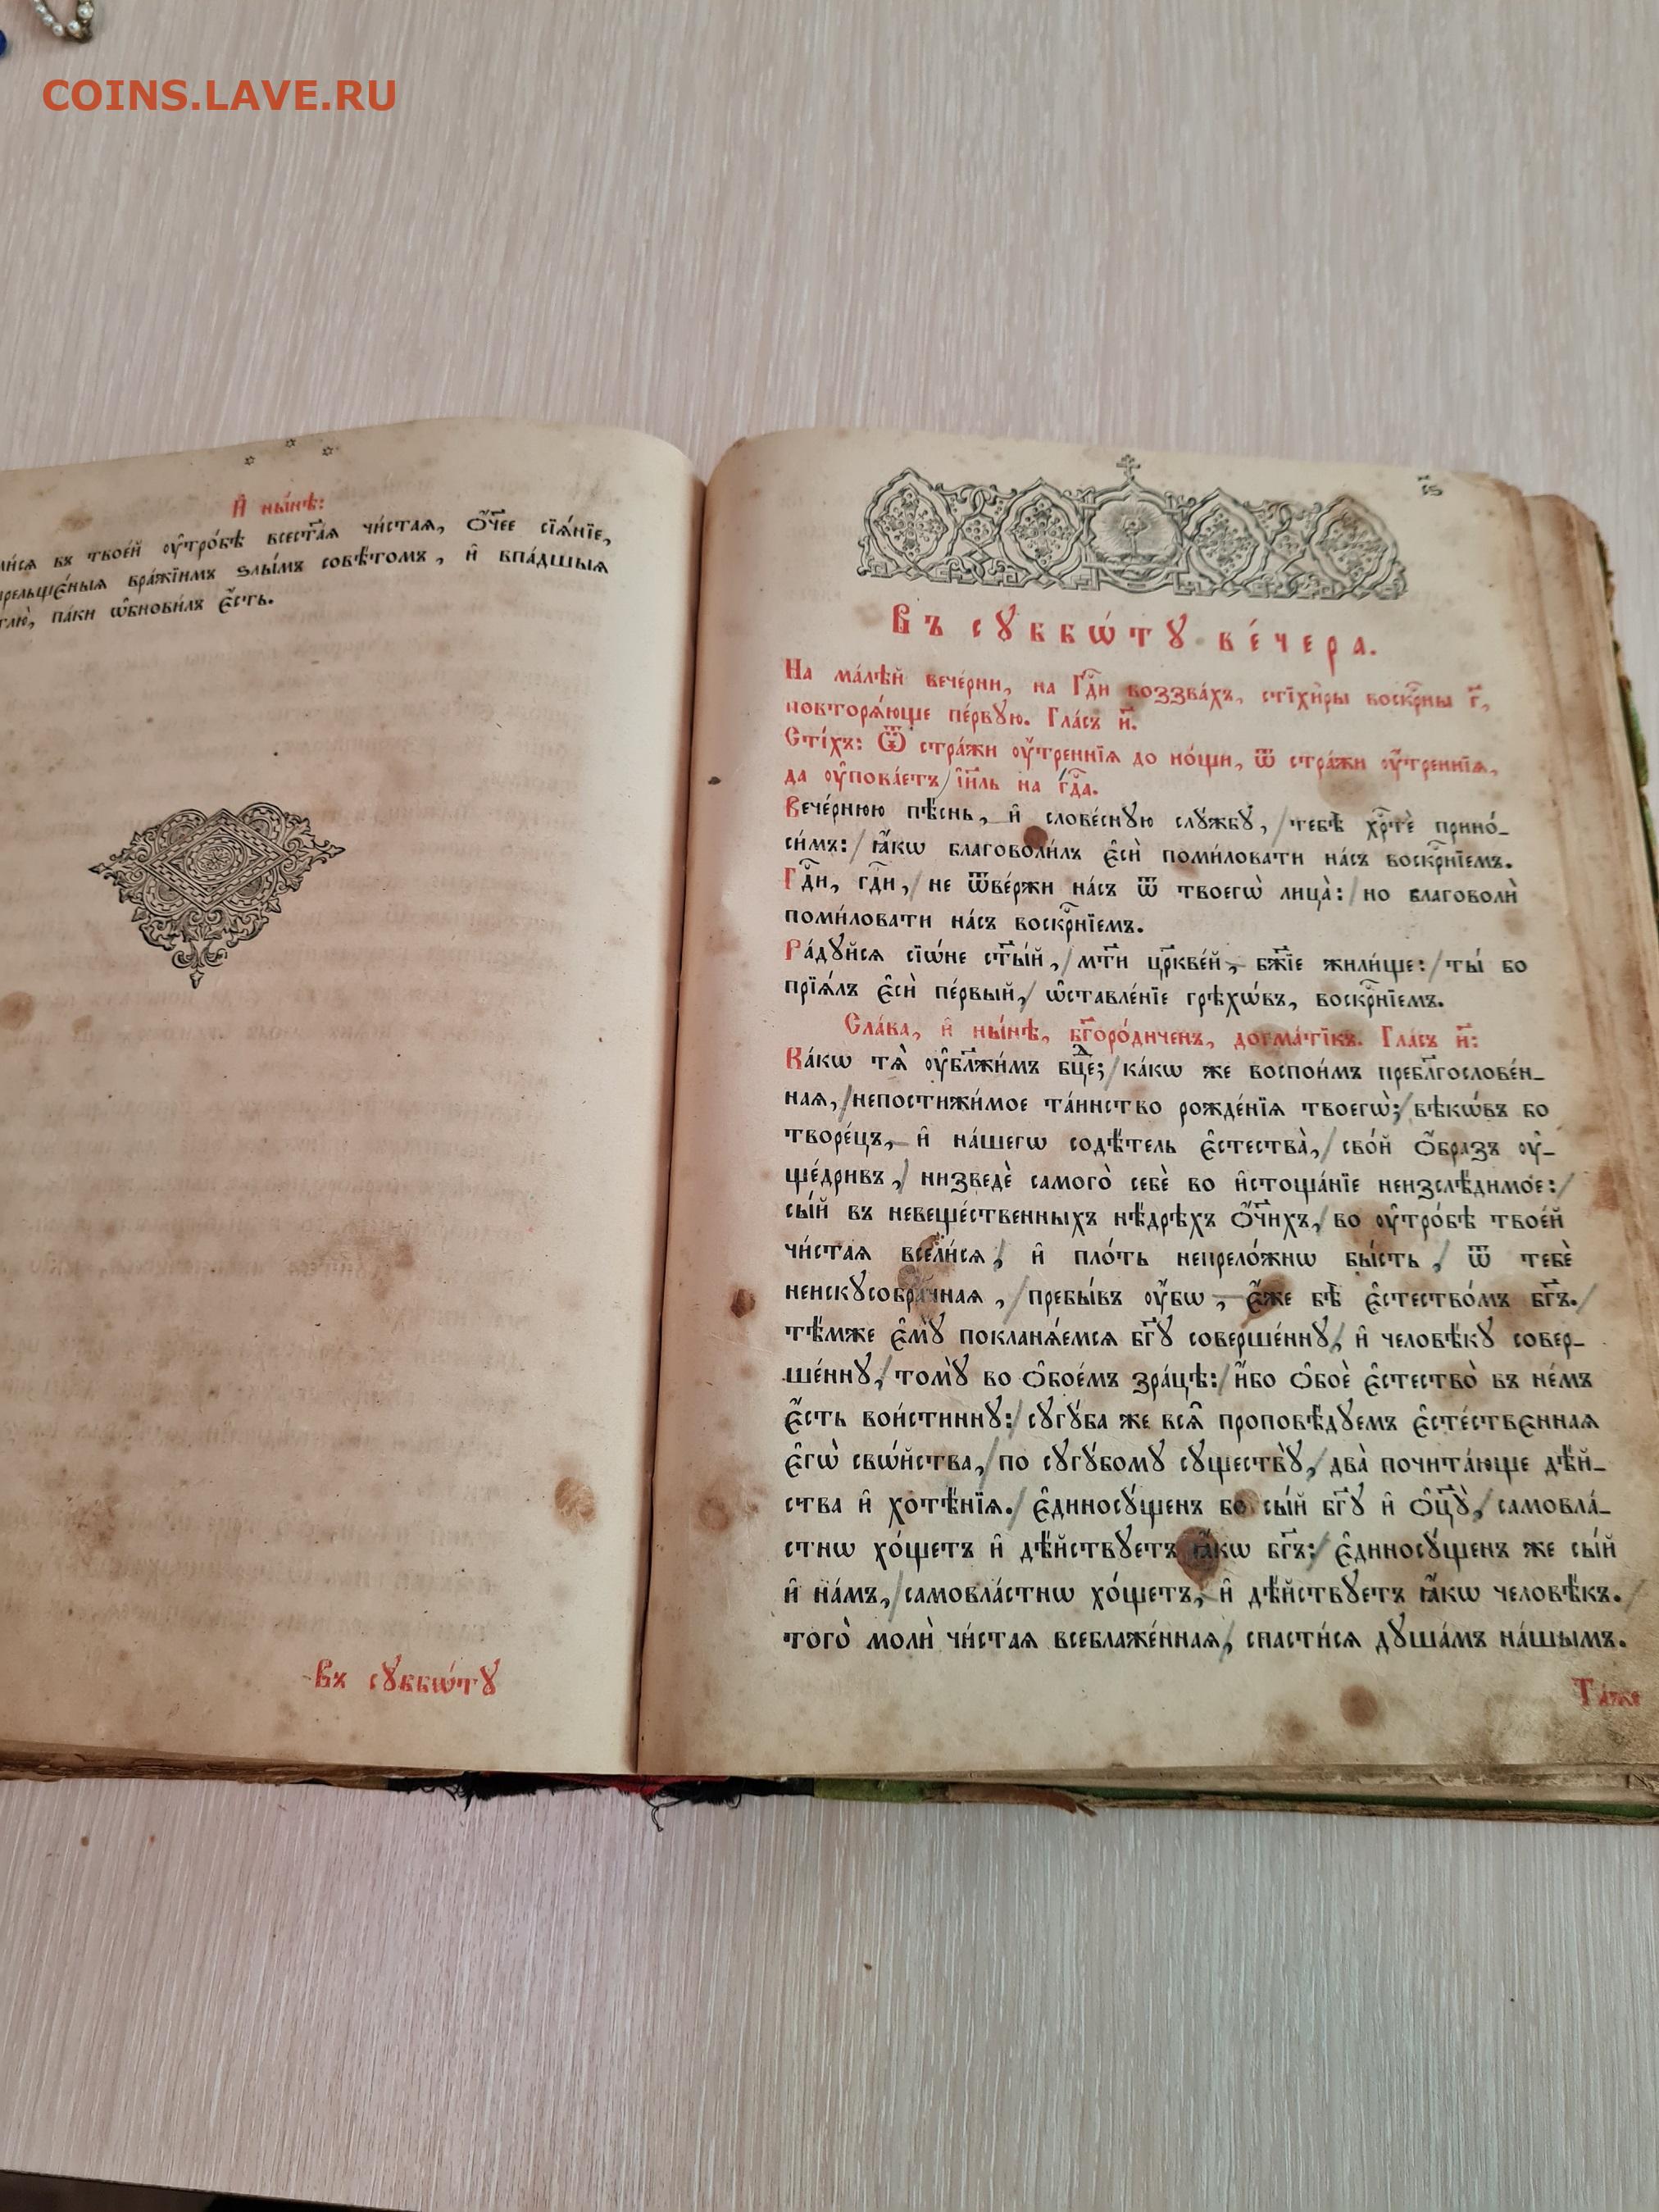 COINS.LAVE.RU
И҆ ны́нѣ:
въ твое́й ᲂу҆тро́бѣ всест҃а́ѧ чи́стаѧ, ѻ҆́ч҃ее сїѧ́нїе,
вра́жїимъ ѕлы́мъ совѣ́томъ, и҆ впа́дшыѧ
па́ки ѡ҆бнови́лъ є҆́сть.
Въ сꙋббѡ́тꙋ
Въ сꙋббѡ́тꙋ ве́чера.
На ма́лѣй вече́рни, на Гдⷭ҇и воззва́хъ, стїхи̑ры воскрⷭ҇ны г҃,
повторѧ́юще пе́рвꙋю. Гла́съ и҃.
Сті́хъ: Ѿ стра́жи ᲂу҆́треннїѧ до но́щи, ѿ стра́жи ᲂу҆́треннїѧ,
да ᲂу҆пова́етъ і҆и҃ль на гдⷭ҇а.
Вече́рнюю пѣ́снь, и҆ слове́снꙋю слꙋ́жбꙋ, тебѣ̀ хрⷭ҇тѐ прино́-
си́мъ: ꙗ҆́кѡ благоволи́лъ є҆сѝ поми́ловати на́съ воскрⷭ҇нїемъ.
Гдⷭ҇и, гдⷭ҇и, не ѿве́ржи на́съ ѿ твоегѡ̀ лица̀: но благоволѝ
поми́ловати на́съ воскрⷭ҇нїемъ.
Ра́дꙋйсѧ сїѡ́не ст҃ы́й, мт҃и цр҃кве́й, бж҃їе жили́ще: ты́ бо
прїѧ́лъ є҆сѝ пе́рвый, ѡ҆ставле́нїе грѣхѡ́въ, воскрⷭ҇нїемъ.
Сла́ва, и҆ ны́нѣ, бг҃оро́диченъ, догма́тїкъ. Гла́съ и҃:
Ка́кѡ тѧ̀ ᲂу҆бл҃жи́мъ бцⷣе; ка́кѡ же воспои́мъ пребл҃гослове́н-
наѧ, непостижи́мое та́инство рожде́нїѧ твоегѡ̀; вѣкѡ́въ бо
творе́цъ, и҆ на́шегѡ содѣ́тель є҆стества̀, сво́й ѻ҆́бразъ ᲂу҆-
ще́дривъ, низведѐ самого̀ себѐ во и҆стоща́нїе неизслѣ́димое:
сы́й въ невеще́ственныхъ нѣ́дрѣхъ ѻ҆́ч҃ихъ, во ᲂу҆тро́бѣ твое́й
чи́стаѧ всели́сѧ, и҆ пло́ть непрело́жнѡ бы́сть, ѿ тебѐ
неискꙋсобра́чнаѧ, пребы́въ ᲂу҆́бѡ, є҆́же бѣ̀ є҆стество́мъ бг҃ъ.
тѣ́мже є҆мꙋ̀ покланѧ́емсѧ бг҃ꙋ соверше́ннꙋ, и҆ человѣ́кꙋ совер-
ше́ннꙋ, томꙋ̀ во ѻ҆бое́мъ зра́цѣ: и҆́бо ѻ҆боѐ є҆стество̀ въ не́мъ
є҆́сть вои́стиннꙋ: сꙋгꙋ́ба же всѧ̑ проповѣ́дꙋемъ є҆сте́ствєннаѧ
є҆гѡ̀ свѡ́йства, по сꙋгꙋ́бомꙋ сꙋществꙋ̀, два̀ почита́юще дѣ̑й-
ства и҆ хотѣ̑нїѧ. Є҆диносꙋ́щенъ бо сы́й бг҃ꙋ и҆ ѻ҆ц҃ꙋ̀, самовла́-
стнѡ хо́щетъ и҆ дѣ́йствꙋетъ ꙗ҆́кѡ бг҃ъ: є҆диносꙋ́щенъ же сы́й
и҆ на́мъ, самовла́стнѡ хо́щетъ, и҆ дѣ́йствꙋетъ ꙗ҆́кѡ человѣ́къ.
того̀ молѝ чи́стаѧ всеблаже́ннаѧ, спасти́сѧ дꙋша́мъ на́шымъ.
Та́же